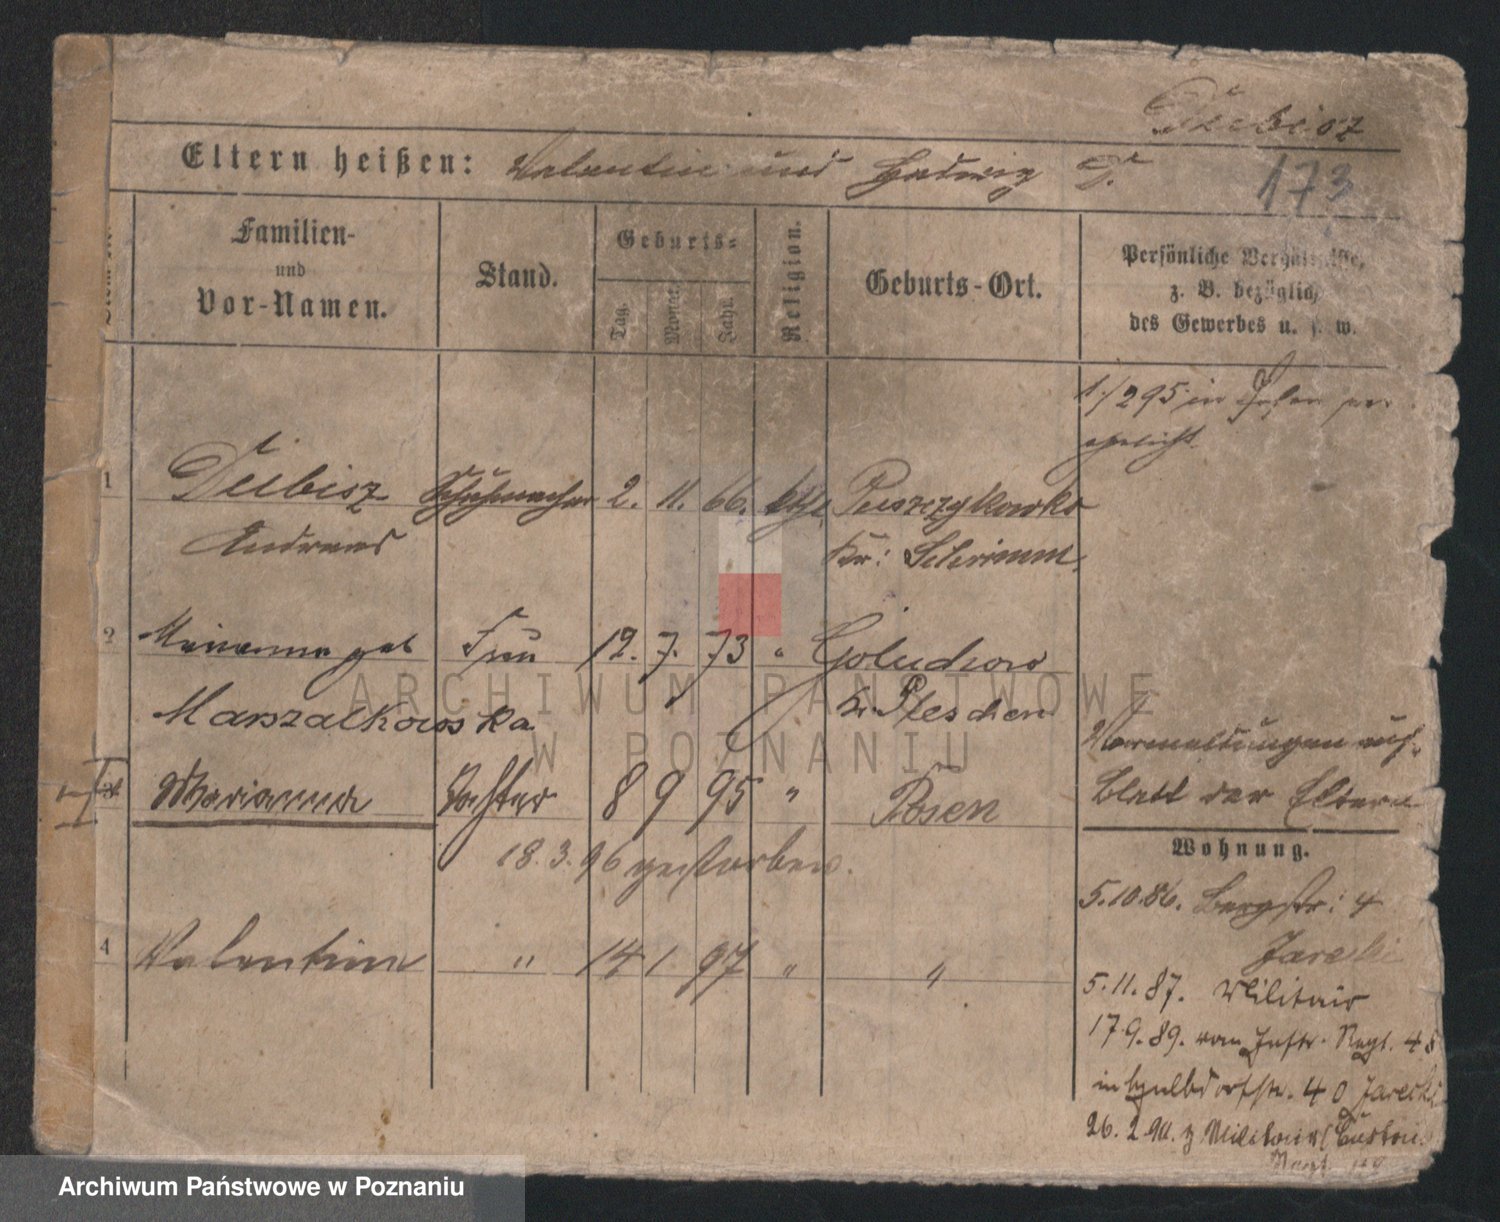 173
Eltern heißen: Valentin und Hedwig D.
Familien-
und
Vor-Namen.
Stand.
Geburts-
Tag.
Monat.
Jahr.
Religion.
Geburts-Ort.
Persönliche Verhältnisse,
z. B. bezüglich
des Gewerbes u. s. w.
1/295 in Posen ver
ehelicht
1 Deibisz Schuhmacher 2. 11. 66. kath.
Andreas Kr: Schrimm.
2 Marianna geb Frau 12. 7. 73 " Goluchow
Marszalkowska Kr. Pleschen
Marianna Tochter 8 9 95 " Posen
18. 3. 96 gestorben.
4 Valentin " 14 1 97 " "
Vermeldungen auf
Blatt der Eltern
Wohnung.
5.10.86. Bergstr: 4
Jarecki
5.11.87. Militair
17.9.89. vom Inftr. Regt.
40 Jarecki
26.2.90. z Militair
ARCHIWUM PAŃSTWOWE
W POZNANIU
Archiwum Państwowe w Poznaniu